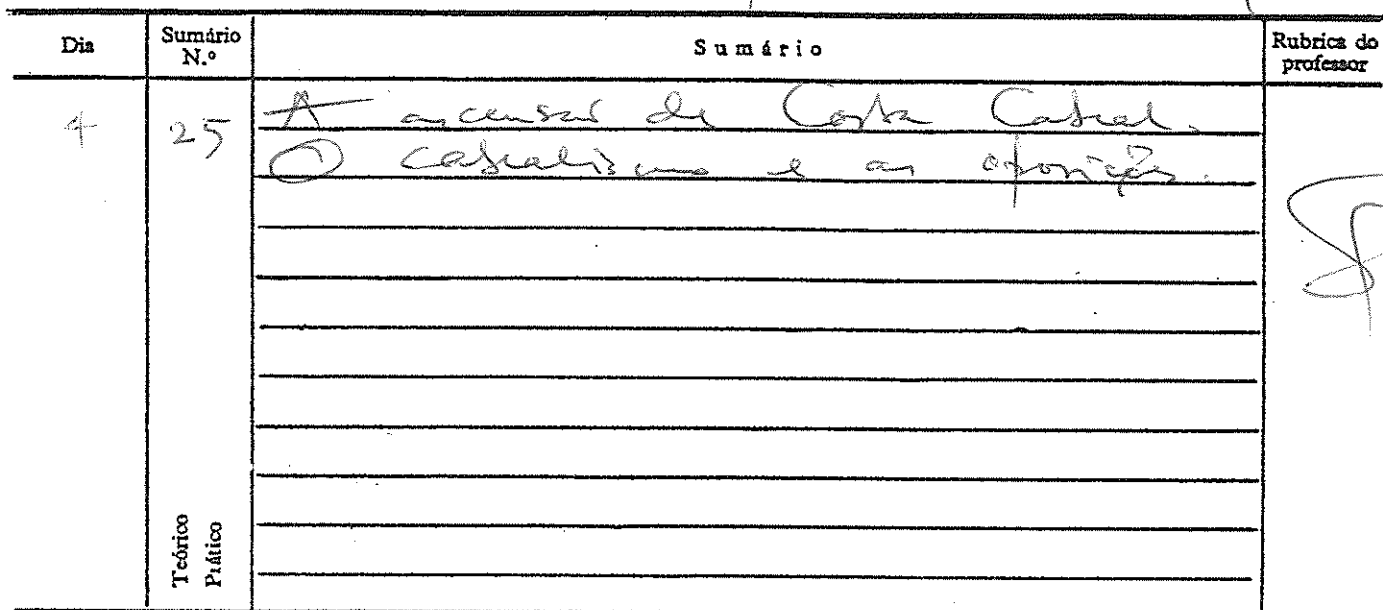 Dia Sumário N.º Sumário Rubrica do professor
4 25 A ascensão de Costa Cabral.
O cabralismo e as oposições.
Teórico
Prático